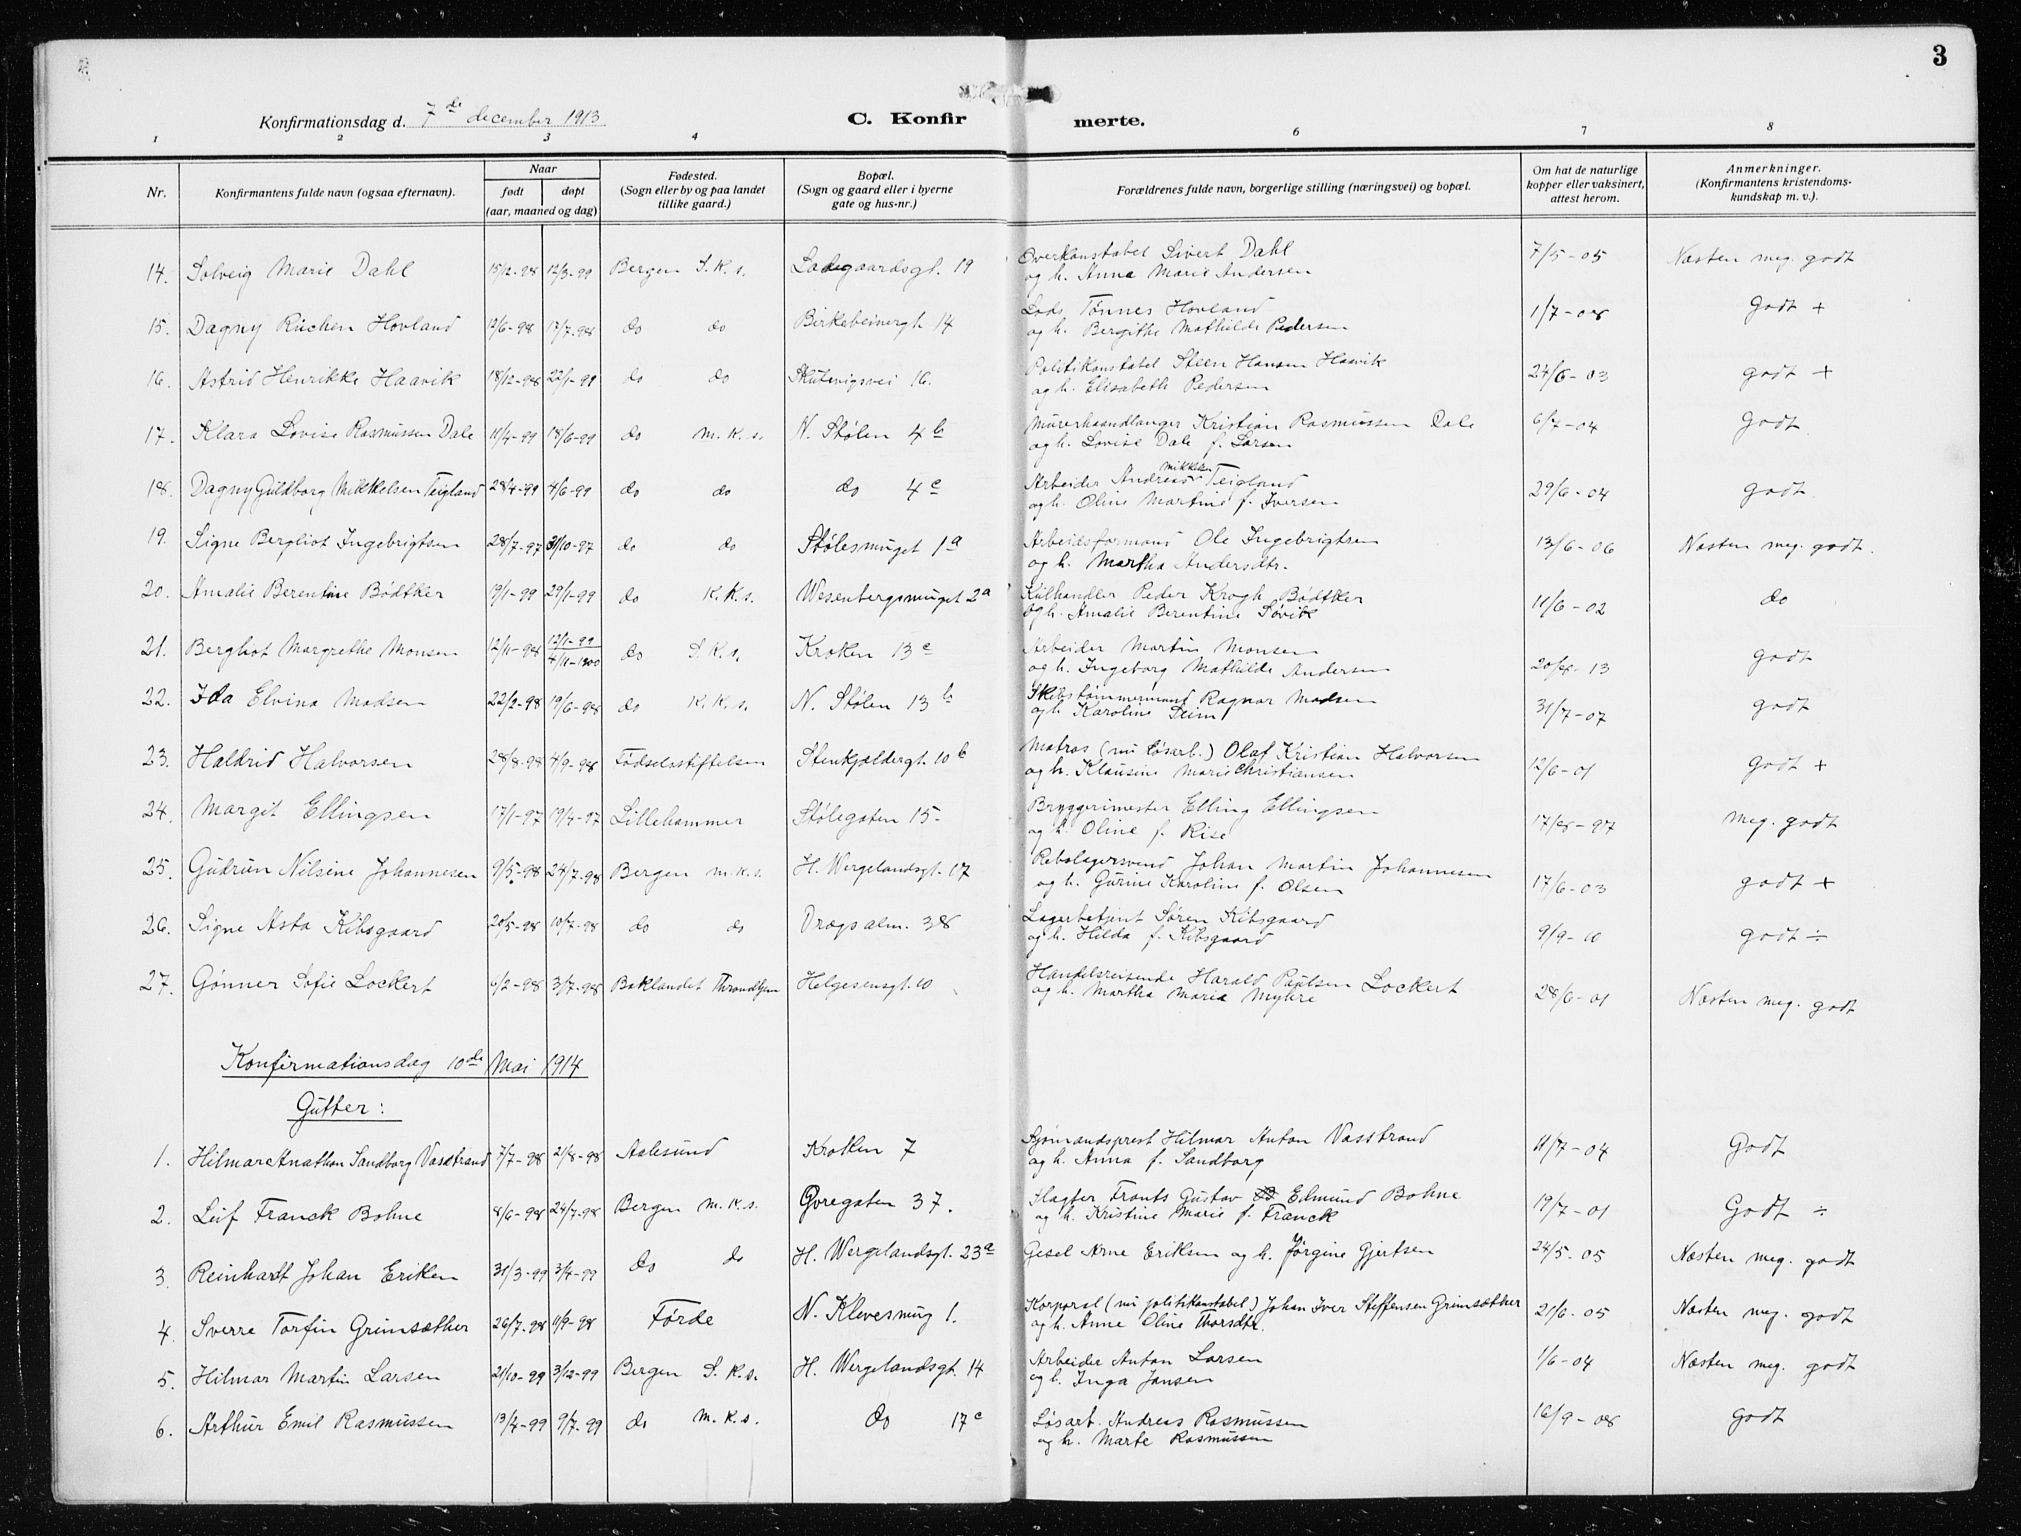 3
Konfirmationsdag d. 7de december 1913 C. Konfirmerte.
1 2 3 4 6 7 8
Nr. Konfirmantens fulde navn (ogsaa efternavn). Naar født døpt (aar, maaned og dag) Fødested. (Sogn eller by og paa landet tillike gaard.) Bopæl. (Sogn og gaard eller i byerne gate og hus-nr.) Forældrenes fulde navn, borgerlige stilling (næringsvei) og bopæl. Om hat de naturlige kopper eller vaksinert, attest herom. Anmerkninger. (Konfirmantens kristendoms- kundskap m. v.).
14. Solveig Marie Dahl 15/12-98 12/3-99 Bergen S. K. s. Ladegaardsgt. 19 Overkonstabel Sivert Dahl 7/5-05 Næsten meg. godt
og h. Anna Marie Andersen
15. Dagny Rüchen Hovland 12/6-98 17/7-98 do do Birkebeinergt. 14 Lods Tønnes Hovland 1/7-08 Godt +
og h. Bergithe Mathilde Pedersen
16. Astrid Henrikke Haavik 18/12-98 22/1-99 do do Skutevigsvei 16. Politikonstabel Steen Hansen Haavik 24/6-03 godt +
og h. Elisabeth Pedersen
17. Klara Lovise Rasmussen Dale 11/4-99 18/6-99 do m. K. s. N. Stølen 4b Murerhaandlanger Kristian Rasmussen Dale 6/7-04 godt.
og h. Lovise Dale f. Larsen
18. Dagny Guldborg Mikkelsen Teigland 28/4-99 4/6-99 do do do 4c Arbeider Andreas Mikkelsen Teigland 29/6-04 godt.
og h. Oline Martine f. Iversen
19. Signe Bergliot Ingebrigtsen 28/7-97 31/10-97 do do Stølesmuget 1a Arbeidsformand Ole Ingebrigtsen 13/6-06 Næsten meg. godt.
og h. Martha Andersdtr.
20. Amalie Berentine Bødtker 19/1-99 29/1-99 do K. K. s. Wesenbergsmuget 2a Kulhandler Peder Krogh Bødtker 11/6-02 do
og h. Amalie Berentine Søvik
21. Bergliot Margrethe Monsen 12/11-98 12/1-99 4/11-1900 do S. K. s. Kroken 13c Arbeider Martin Monsen 20/8-13 godt
og h. Ingeborg Mathilde Andersen
22. Ida Elvina Madsen 22/2-98 19/6-98 do K. K. s. N. Stølen 13b Skibstømmermand Ragnar Madsen 31/7-07 godt
og h. Karoline Seim
23. Haldrid Halvorsen 28/8-98 4/9-98 Fødselsstiftelsen Stenkjældergt. 10b Matros (nu løsarb.) Olaf Kristian Halvorsen 12/6-01 godt +
og h. Klausine Marie Christiansen
24. Margit Ellingsen 17/1-97 19/4-97 Lillehammer Stølegaten 15- Bryggerimester Elling Ellingsen 17/8-97 meg. godt
og h. Oline f. Rise
25. Gudrun Nilsine Johannesen 9/5-98 24/7-98 Bergen m. K. s. H. Wergelandsgt. 17 Rebslagersvend Johan Martin Johannesen 17/6-03 godt +
og h. Gurine Karoline f. Olsen
26. Signe Asta Kibsgaard 20/5-98 10/7-98 do do Drægs alm. 38 Lagerbetjent Søren Kibsgaard 9/9-10 godt ÷
og h. Hilda f. Kibsgaard
27. Gønner Sofie Lockert 6/2-98 3/7-98 Baklandet Throndhjem Helgesensgt. 10 Handelsreisende Harald Paulsen Lockert 28/6-01 Næsten meg. godt
og h. Martha Maria Myhre
Konfirmationsdag 10de Mai 1914
Gutter:
1. Hilmar Anathon Sandborg Vasstrand 7/7-98 21/8-98 Aalesund Kroken 7 Sjømandsprest Hilmar Anton Vasstrand 11/7-04 Godt
og h. Anna f. Sandborg
2. Leif Franck Bohne 8/6-98 24/7-98 Bergen m. K. s. Øvregaten 37. Slagter Frants Gustav Edmund Bohne 19/7-01 Godt ÷
og h. Kristine Marie f. Franck
3. Reinhardt Johan Eriken 31/3-99 3/4-99 do do H. Wergelandsgt. 23a Gesel Arne Eriksen og h. Jørgine Gjertsen 24/5-05 Næsten meg. godt
4. Sverre Torfin Grimsæther 26/7-98 11/9-98 Førde N. Klevesmug 1. Korporal (nu politikonstabel) Johan Iver Steffensen Grimsæther 21/6-05 Næsten meg. godt
og h. Anne Oline Thorsdtr.
5. Hilmar Martin Larsen 21/10-99 3/12-99 Bergen S. K. s. H. Wergelandsgt. 14 Arbeider Anton Larsen 1/6-04 Næsten meg. godt
og h. Inga Jansen
6. Arthur Emil Rasmussen 13/4-99 9/7-99 do m. K. s. do 17c Løsarb. Andreas Rasmussen 16/9-08 godt
og h. Marte Rasmussen